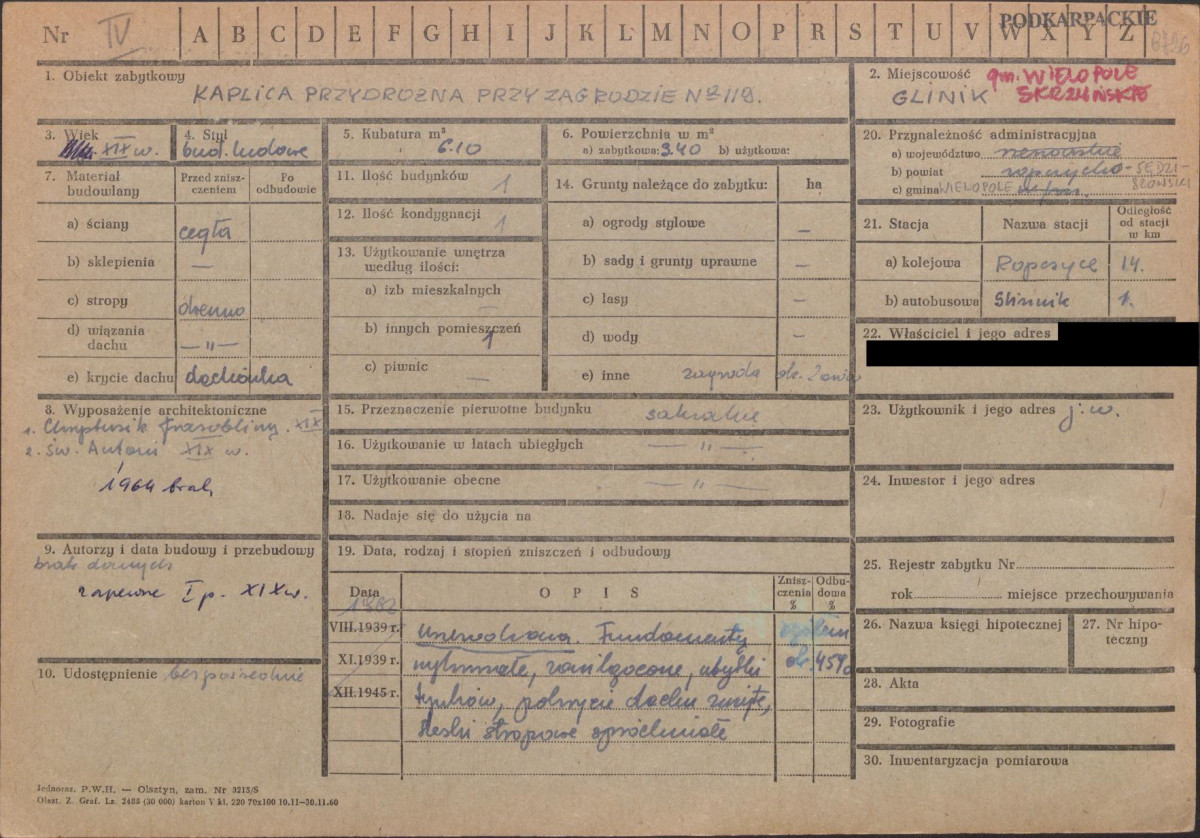 PODKARPACKIE
Nr IV A B C D E F G H I J K L Ł M N O P R S T U V W X Y Z
1. Obiekt zabytkowy
KAPLICA PRZYDROŻNA PRZY ZAGRODZIE Nº 119.
2. Miejscowość gm. WIELOPOLE
GLINIK SKRZYŃSKIE
3. Wiek
XIX w.
4. Styl
bud. ludowe
5. Kubatura m³
6.10
6. Powierzchnia w m²
a) zabytkowa: 3.40 b) użytkowa:
7. Materiał budowlany
Przed zniszczeniem
Po odbudowie
a) ściany cegła
b) sklepienia —
c) stropy drewno
d) wiązania dachu — „ —
e) krycie dachu dachówka
8. Wyposażenie architektoniczne
1. Chrystusik frasobliwy. XIX
2. św. Antoni XIX w.
1964 brak
9. Autorzy i data budowy i przebudowy
brak danych
zapewne I p. XIX w.
10. Udostępnienie bezpośrednie
11. Ilość budynków 1
12. Ilość kondygnacji 1
13. Użytkowanie wnętrza według ilości:
a) izb mieszkalnych —
b) innych pomieszczeń 1
c) piwnic —
14. Grunty należące do zabytku: ha
a) ogrody stylowe —
b) sady i grunty uprawne —
c) lasy —
d) wody —
e) inne zagroda ok.
15. Przeznaczenie pierwotne budynku sakralne
16. Użytkowanie w latach ubiegłych — „ —
17. Użytkowanie obecne — „ —
18. Nadaje się do użycia na
19. Data, rodzaj i stopień zniszczeń i odbudowy
Data
OPIS
Zniszczenia %
Odbudowa %
VIII.1939 r.
XI.1939 r.
XII.1945 r.
Fundamenty ogółem
zawilgocone, ubytki ok. 45%
tynków, pokrycie dachu zużyte,
deski stropowe spróchniałe
20. Przynależność administracyjna
a) województwo rzeszowskie
b) powiat ropczycko-SĘDZISZOWSKI
c) gmina WIELOPOLE
21. Stacja
Nazwa stacji
Odległość od stacji w km
a) kolejowa Ropczyce 14.
b) autobusowa Glinnik 1.
22. Właściciel i jego adres
23. Użytkownik i jego adres j.w.
24. Inwestor i jego adres
25. Rejestr zabytku Nr
rok miejsce przechowywania
26. Nazwa księgi hipotecznej
27. Nr hipoteczny
28. Akta
29. Fotografie
30. Inwentaryzacja pomiarowa
Jednoraz. P.W.H. — Olsztyn, zam. Nr 3215/S
Olszt. Z. Graf. Lz. 2488 (30 000) karton V kl. 220 70x100 10.11—30.11.60